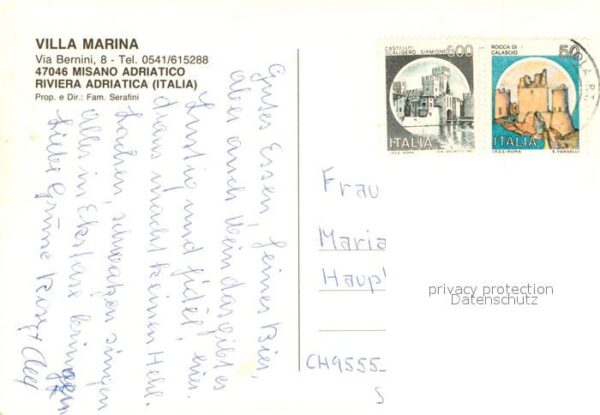 VILLA MARINA
Via Bernini, 8 - Tel. 0541/615288
47046 MISANO ADRIATICO
RIVIERA ADRIATICA (ITALIA)
Prop. e Dir.: Fam. Serafini
Gutes Essen, feines Bier,
aber auch Wein das gibt es
Lustig und fidel, wir.
draus macht keinen Hehl.
Lachen, schwatzen singen
alles in Ekstase bringen
Liebe Grüsse
CASTELLO
SCALIGERO SIRMIONE
600
ITALIA
I.P.Z.S. ROMA
ROCCA DI
CALASCIO
50
ITALIA
I.P.Z.S. ROMA
E. VANGELLI
Frau
Maria
Haup
privacy protection
Datenschutz
CH9555
S